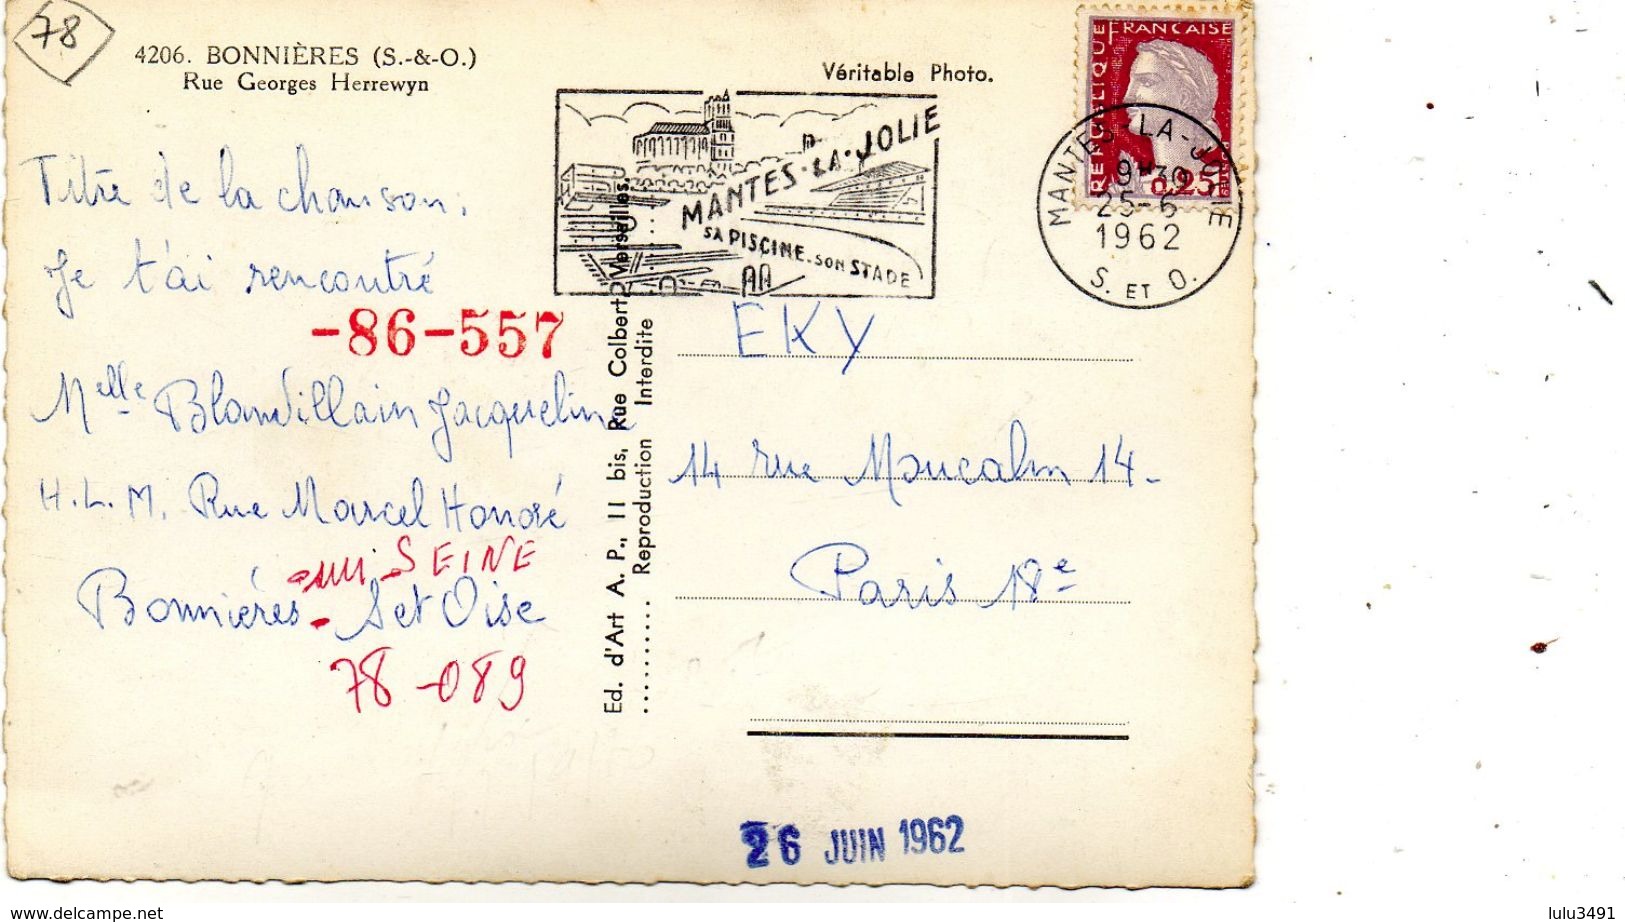 78
4206. BONNIÈRES (S.-&-O.)
Rue Georges Herrewyn
Véritable Photo.
RÉPUBLIQUE FRANÇAISE
0,25
MANTES-LA-JOLIE
SA PISCINE-SON STADE
MANTES-LA-JOLIE
9H30
25-6
1962
S. ET O.
Titre de la chanson:
Je t'ai rencontré
-86-557
Melle Blanvillain Jacqueline
H.L.M. Rue Marcel Honoré
sur SEINE
Bonnières - S et Oise
78-089
Ed. d'Art A. P., 11 bis, Rue Colbert, Versailles.
Reproduction Interdite
EKY
14 rue Moncalm 14-
Paris 18e
26 JUIN 1962
www.delcampe.net
lulu3491